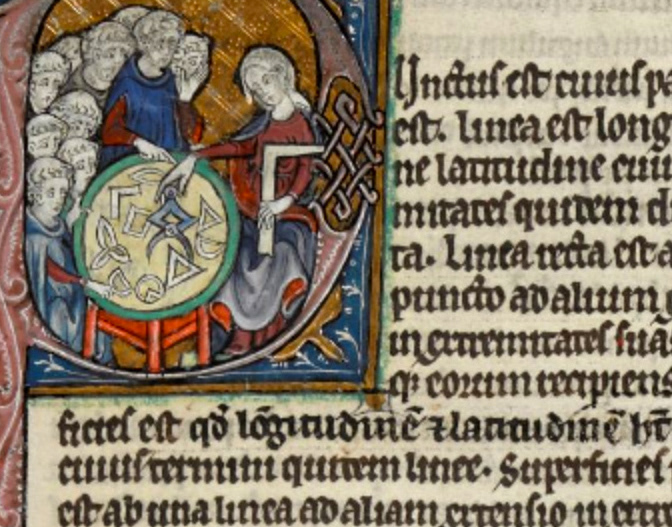 Unctus est cuius pa
est. linea est long
ne latitudine cui
mitates quidem d
ta. Linea recta est a
puncto ad alium
in extremitates suas
q; eorum recipiens
ficies est qd̄ lōgitudinē ⁊ latitudinē ht̄
cuius termini quidem linee. Superficies
est ab una linea ad aliam extensio in extr